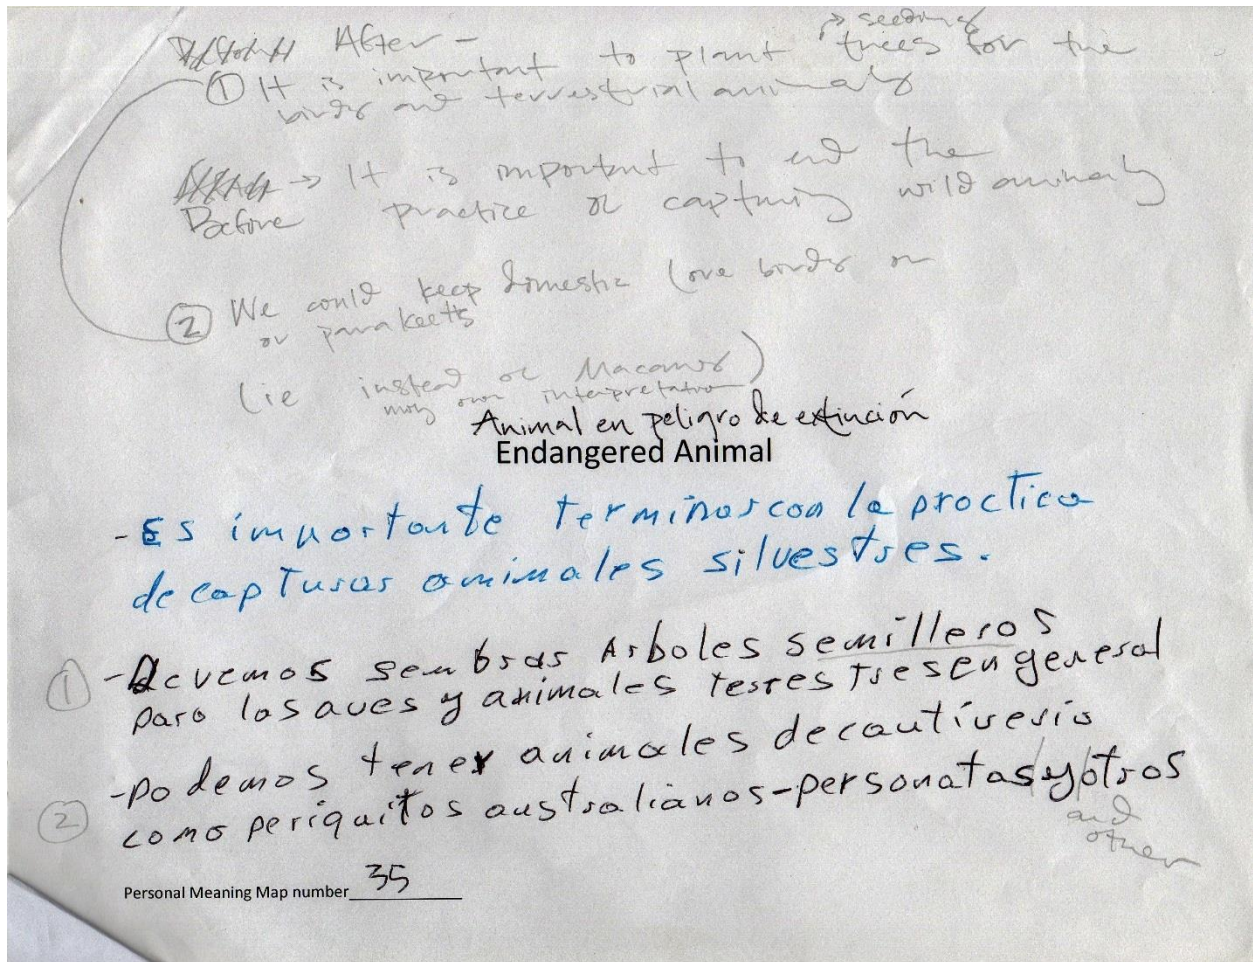 After -
→ seeding
① It is important to plant trees for the
birds and terrestrial animals
→ It is important to end the
Before practice of capturing wild animals
② We could keep domestic love birds or
or parakeets
(ie instead of Macaws)
my own interpretation
Animal en peligro de extinción
Endangered Animal
- Es importante terminar con la practica
de capturar animales silvestres.
① - Devemos sembrar Arboles semilleros
para las aves y animales terrestres en general
- podemos tener animales de cautiverio
② como periquitos australianos - personatas y otros
and
other
Personal Meaning Map number 35